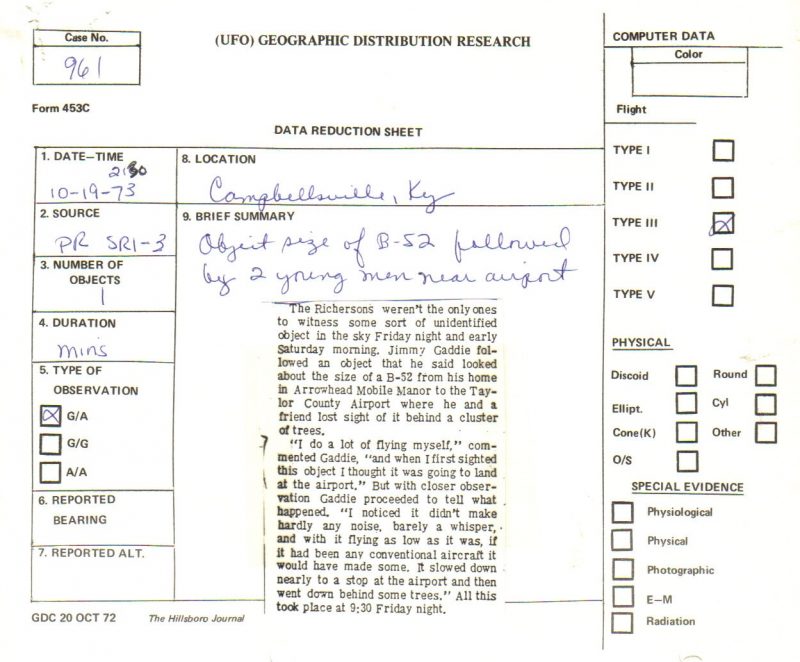 Case No.
961
(UFO) GEOGRAPHIC DISTRIBUTION RESEARCH
Form 453C
DATA REDUCTION SHEET
1. DATE—TIME
2130
10-19-73
8. LOCATION
Campbellsville, Ky
2. SOURCE
PR SR1-3
9. BRIEF SUMMARY
Object size of B-52 followed
by 2 young men near airport
3. NUMBER OF
OBJECTS
1
4. DURATION
mins
5. TYPE OF
OBSERVATION
G/A
G/G
A/A
6. REPORTED
BEARING
7. REPORTED ALT.
The Richersons weren't the only ones
to witness some sort of unidentified
object in the sky Friday night and early
Saturday morning. Jimmy Gaddie fol-
lowed an object that he said looked
about the size of a B-52 from his home
in Arrowhead Mobile Manor to the Tay-
lor County Airport where he and a
friend lost sight of it behind a cluster
of trees.
"I do a lot of flying myself," com-
mented Gaddie, "and when I first sighted
this object I thought it was going to land
at the airport." But with closer obser-
vation Gaddie proceeded to tell what
happened. "I noticed it didn't make
hardly any noise, barely a whisper,
and with it flying as low as it was, if
it had been any conventional aircraft it
would have made some. It slowed down
nearly to a stop at the airport and then
went down behind some trees." All this
took place at 9:30 Friday night.
GDC 20 OCT 72
The Hillsboro Journal
COMPUTER DATA
Color
Flight
TYPE I
TYPE II
TYPE III
TYPE IV
TYPE V
PHYSICAL
Discoid
Round
Ellipt.
Cyl
Cone(K)
Other
O/S
SPECIAL EVIDENCE
Physiological
Physical
Photographic
E—M
Radiation